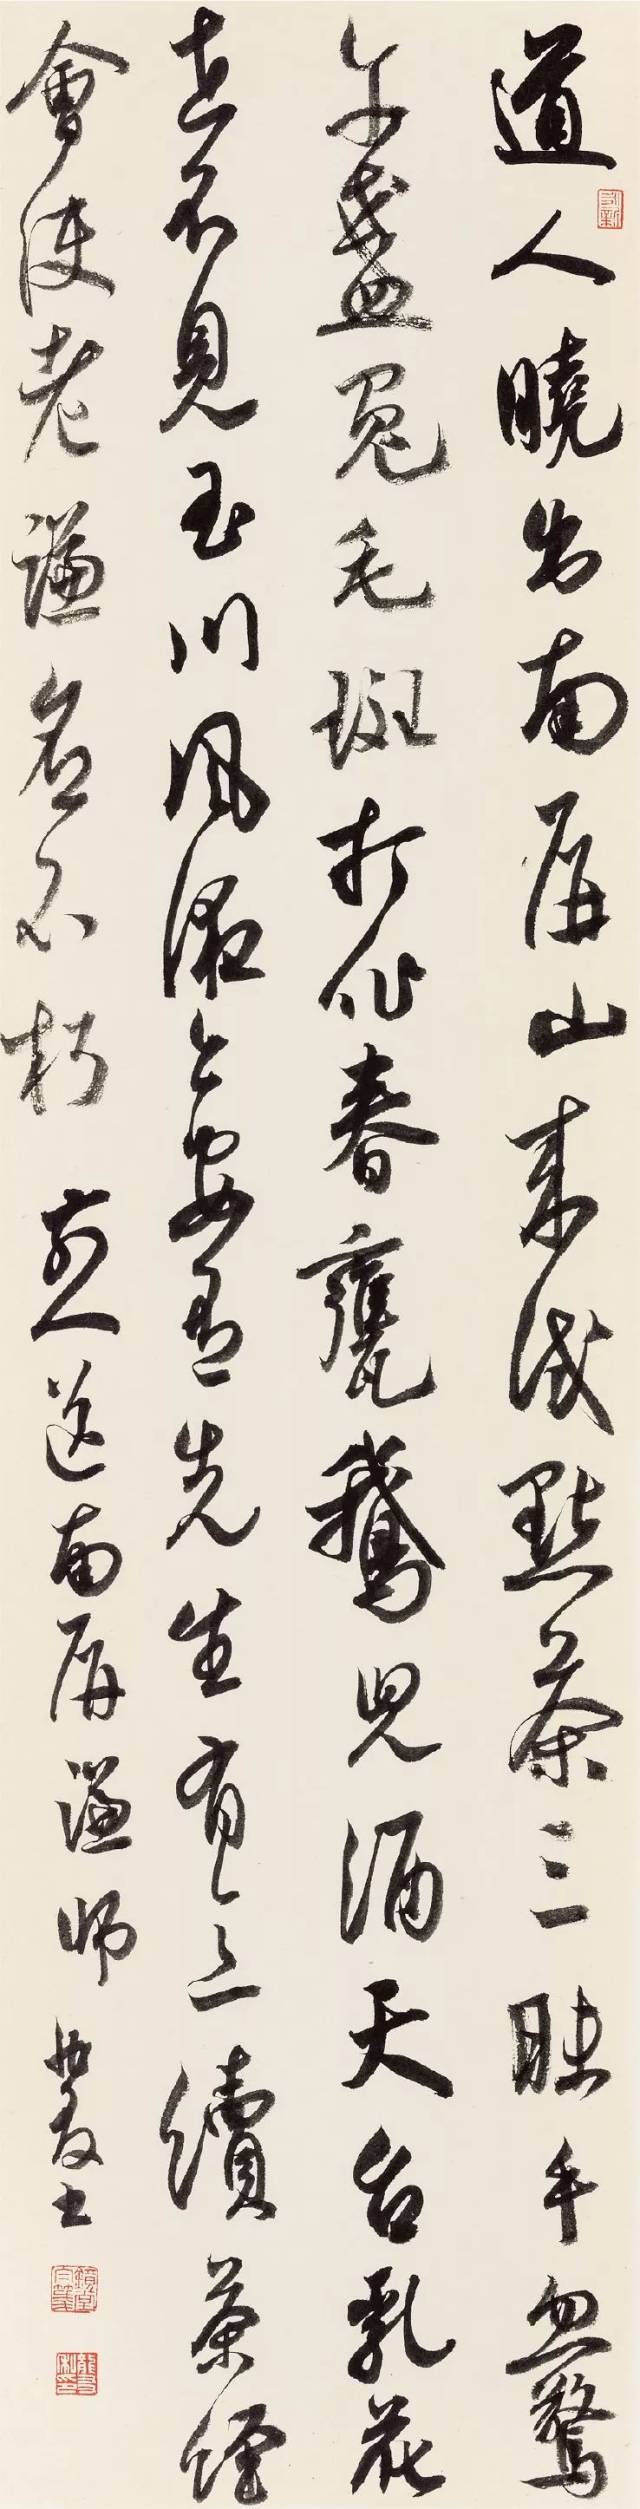 道人曉出南屏山来試點茶三昧手忽驚
午盞兔毛斑打作春甕鵝兒酒天台乳花
世不見玉川風液今安有先生有意續茶經
會使老謙名不朽 送南屏謙師